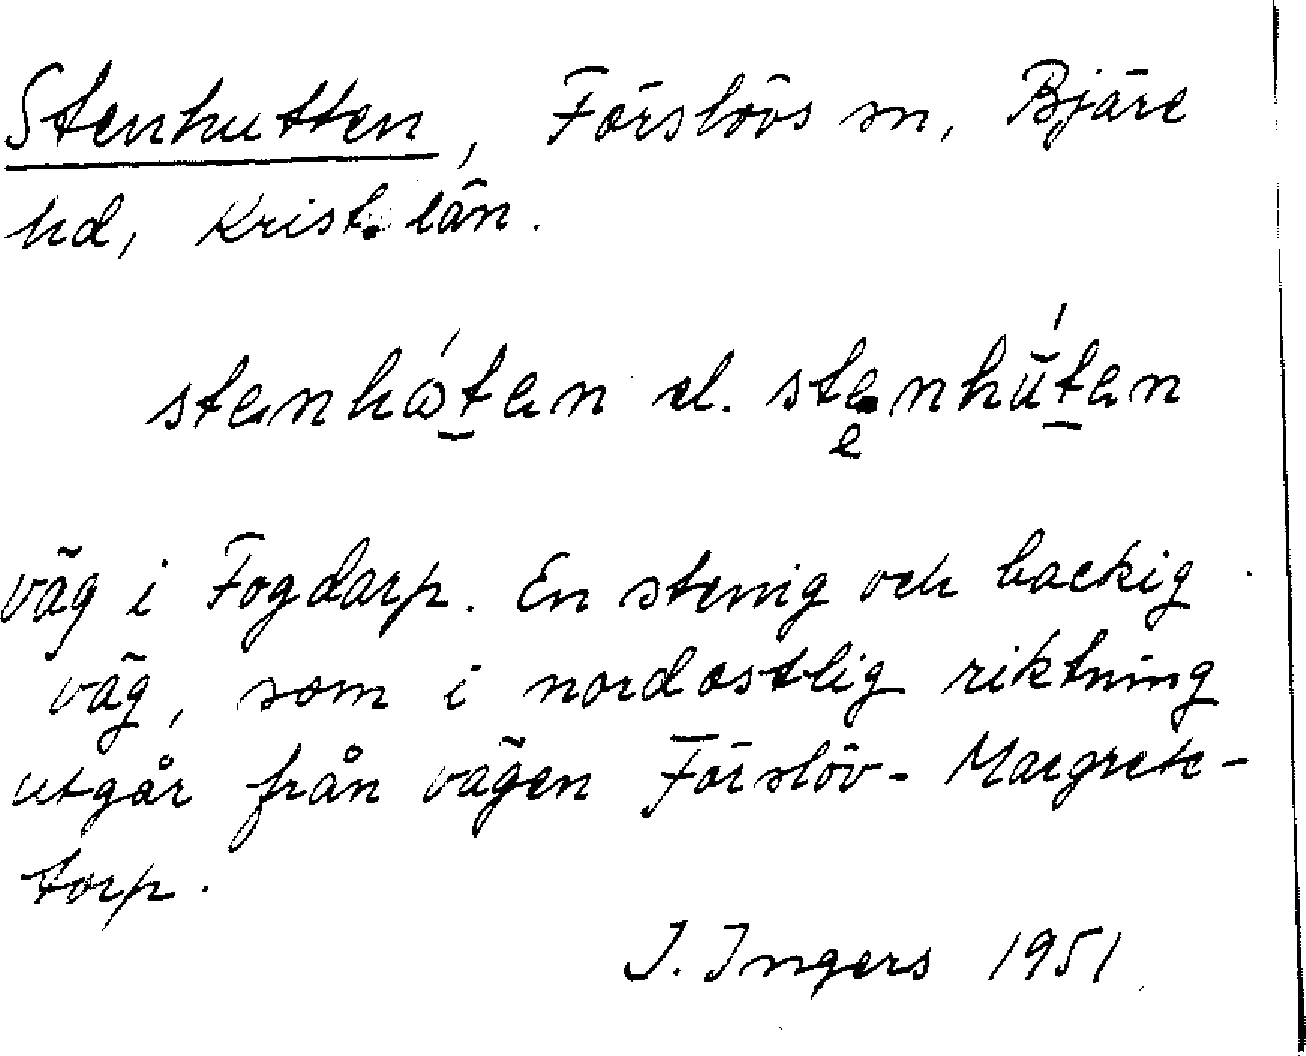 Stenhutten, Förslövs sn, Bjäre
hd, Krist. län.
stenhó̱ten el. stenhú̱ten
e
väg i Fogdarp. En stenig och backig
väg, som i nordostlig riktning
utgår från vägen Förslöv - Margrete-
torp.
J. Ingers 1951